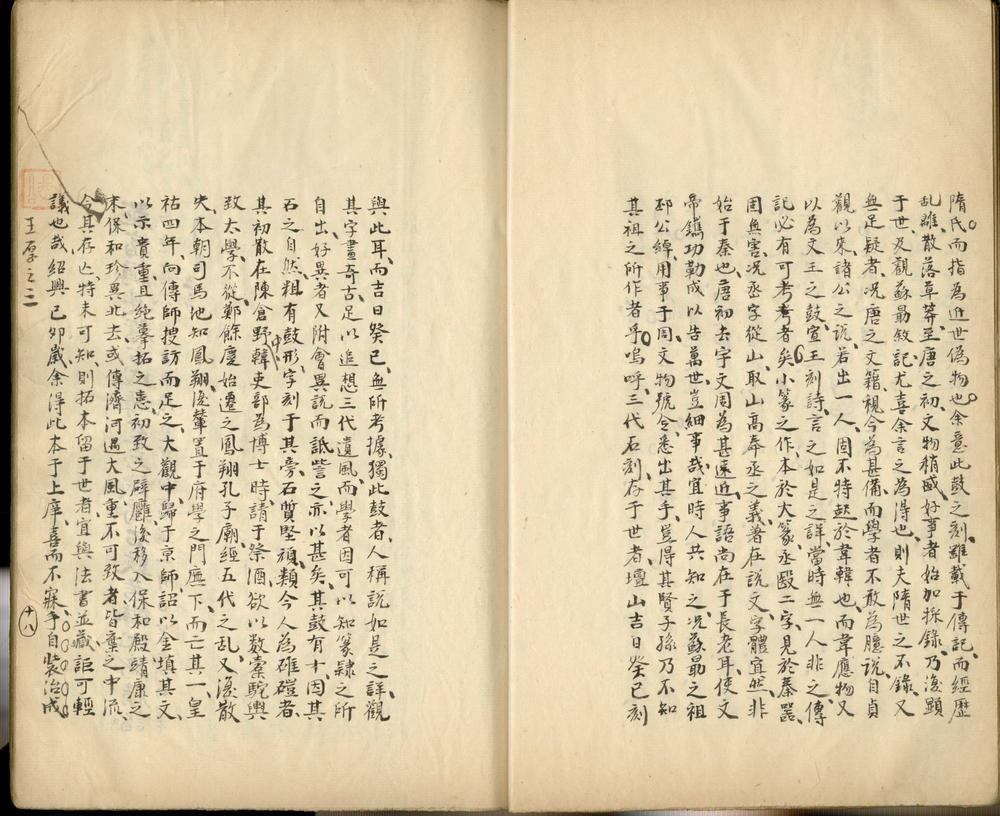 隋氏而指為近世偽物也余意此鼓之刻雖載于傳記而經歷
乱離散落草莽至唐之初文物稍盛好事者始加採錄乃浚顯
于世及觀蘇勗敘記尤喜余言之為得也則夫隋世之不錄又
無足疑者况唐之文籍視今為甚備而學者不敢為臆說自貞
觀以來諸公之說若出一人固不特起於韋韓也而韋應物又
以為文王之鼓宣王刻詩言之如是之詳當時無一人非之傳
記必有可考者矣小篆之作本於大篆丞殹二字見於秦噐
固無害况丞字從山取山高奉丞之義著在說文字體宜然非
始于秦也唐初去宇文周為甚遠近事語尚在于長老耳使文
帝鐫功勒成以告萬世豈細事哉宜時人共知之况蘇勗之祖
邳公綽用事于周文物號令悉出其手豈得其賢子孫乃不知
其祖之所作者乎嗚呼三代石刻存于世者壇山吉日癸巳刻
與此耳而吉日癸巳無所考據獨此鼓者人稱說如是之詳觀
其字畫奇古足以追想三代遺風而學者因可以知篆隸之所
自出好異者又附會異說而詆訾之亦以甚矣其鼓有十因其
石之自然粗有鼓形字刻于其旁石質堅頑類今人為碓磑者
其初散在陳倉野中韓吏部為博士時請于祭酒欲以数橐駝輿
致太學不從鄭餘慶始遷之鳳翔孔子廟經五代之乱又浚散
失本朝司馬池知鳳翔浚輦置于府學之門廡下而亡其一皇
祐四年向傳師搜訪而足之大觀中歸于京師詔以金填其文
以示貴重且絕摹拓之患初致之辟廱後移入保和殿靖康之
末保和珍異北去或傳濟河遇大風重不可致者皆棄之中流
今其存亡特未可知則拓本留于世者宜與法書並藏詎可輕
議也哉紹興己夘嵗余得此本于上庠喜而不寐手自裝治成
王厚之二
十八